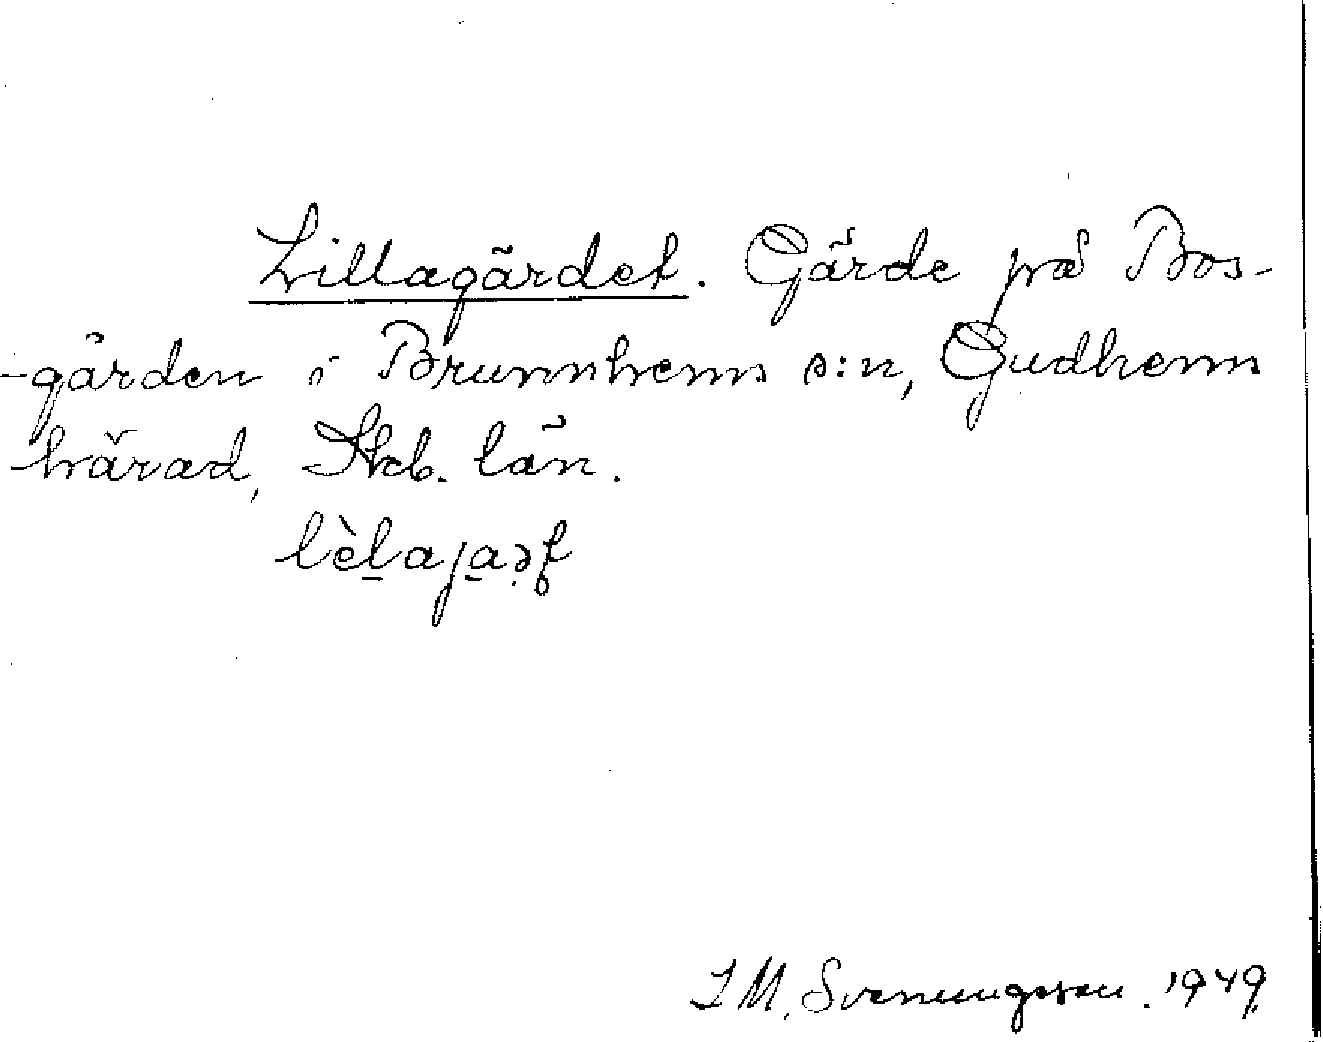 Lillagärdet. Gärde på Bos-
gården i Brunnhems s:n, Gudhems
härad, Skb. län.
I M. Svenungsson. 1949